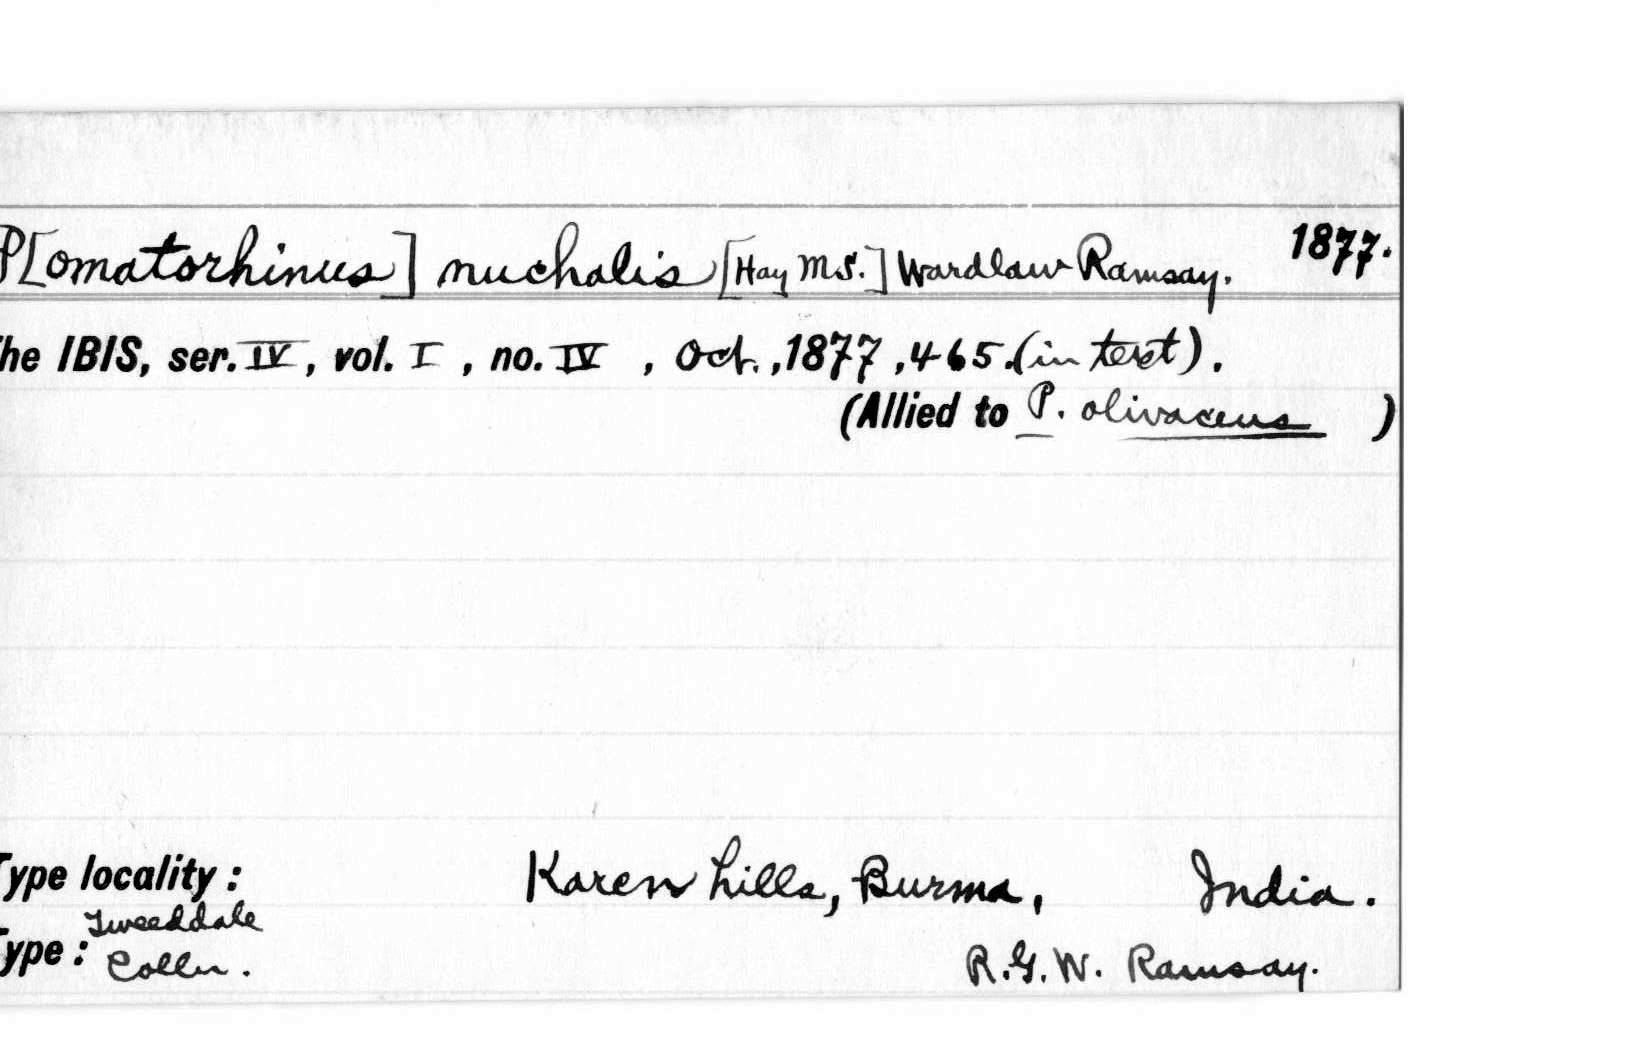 P[omatorhinus] nuchalis [Hay MS.] Wardlaw Ramsay. 1877.
he IBIS, ser. IV, vol. I, no. IV, Oct., 1877, 465. (in text).
(Allied to P. olivaceus)
Type locality: Karen hills, Burma, India.
Tweeddale
Type: Colln. R.G.W. Ramsay.